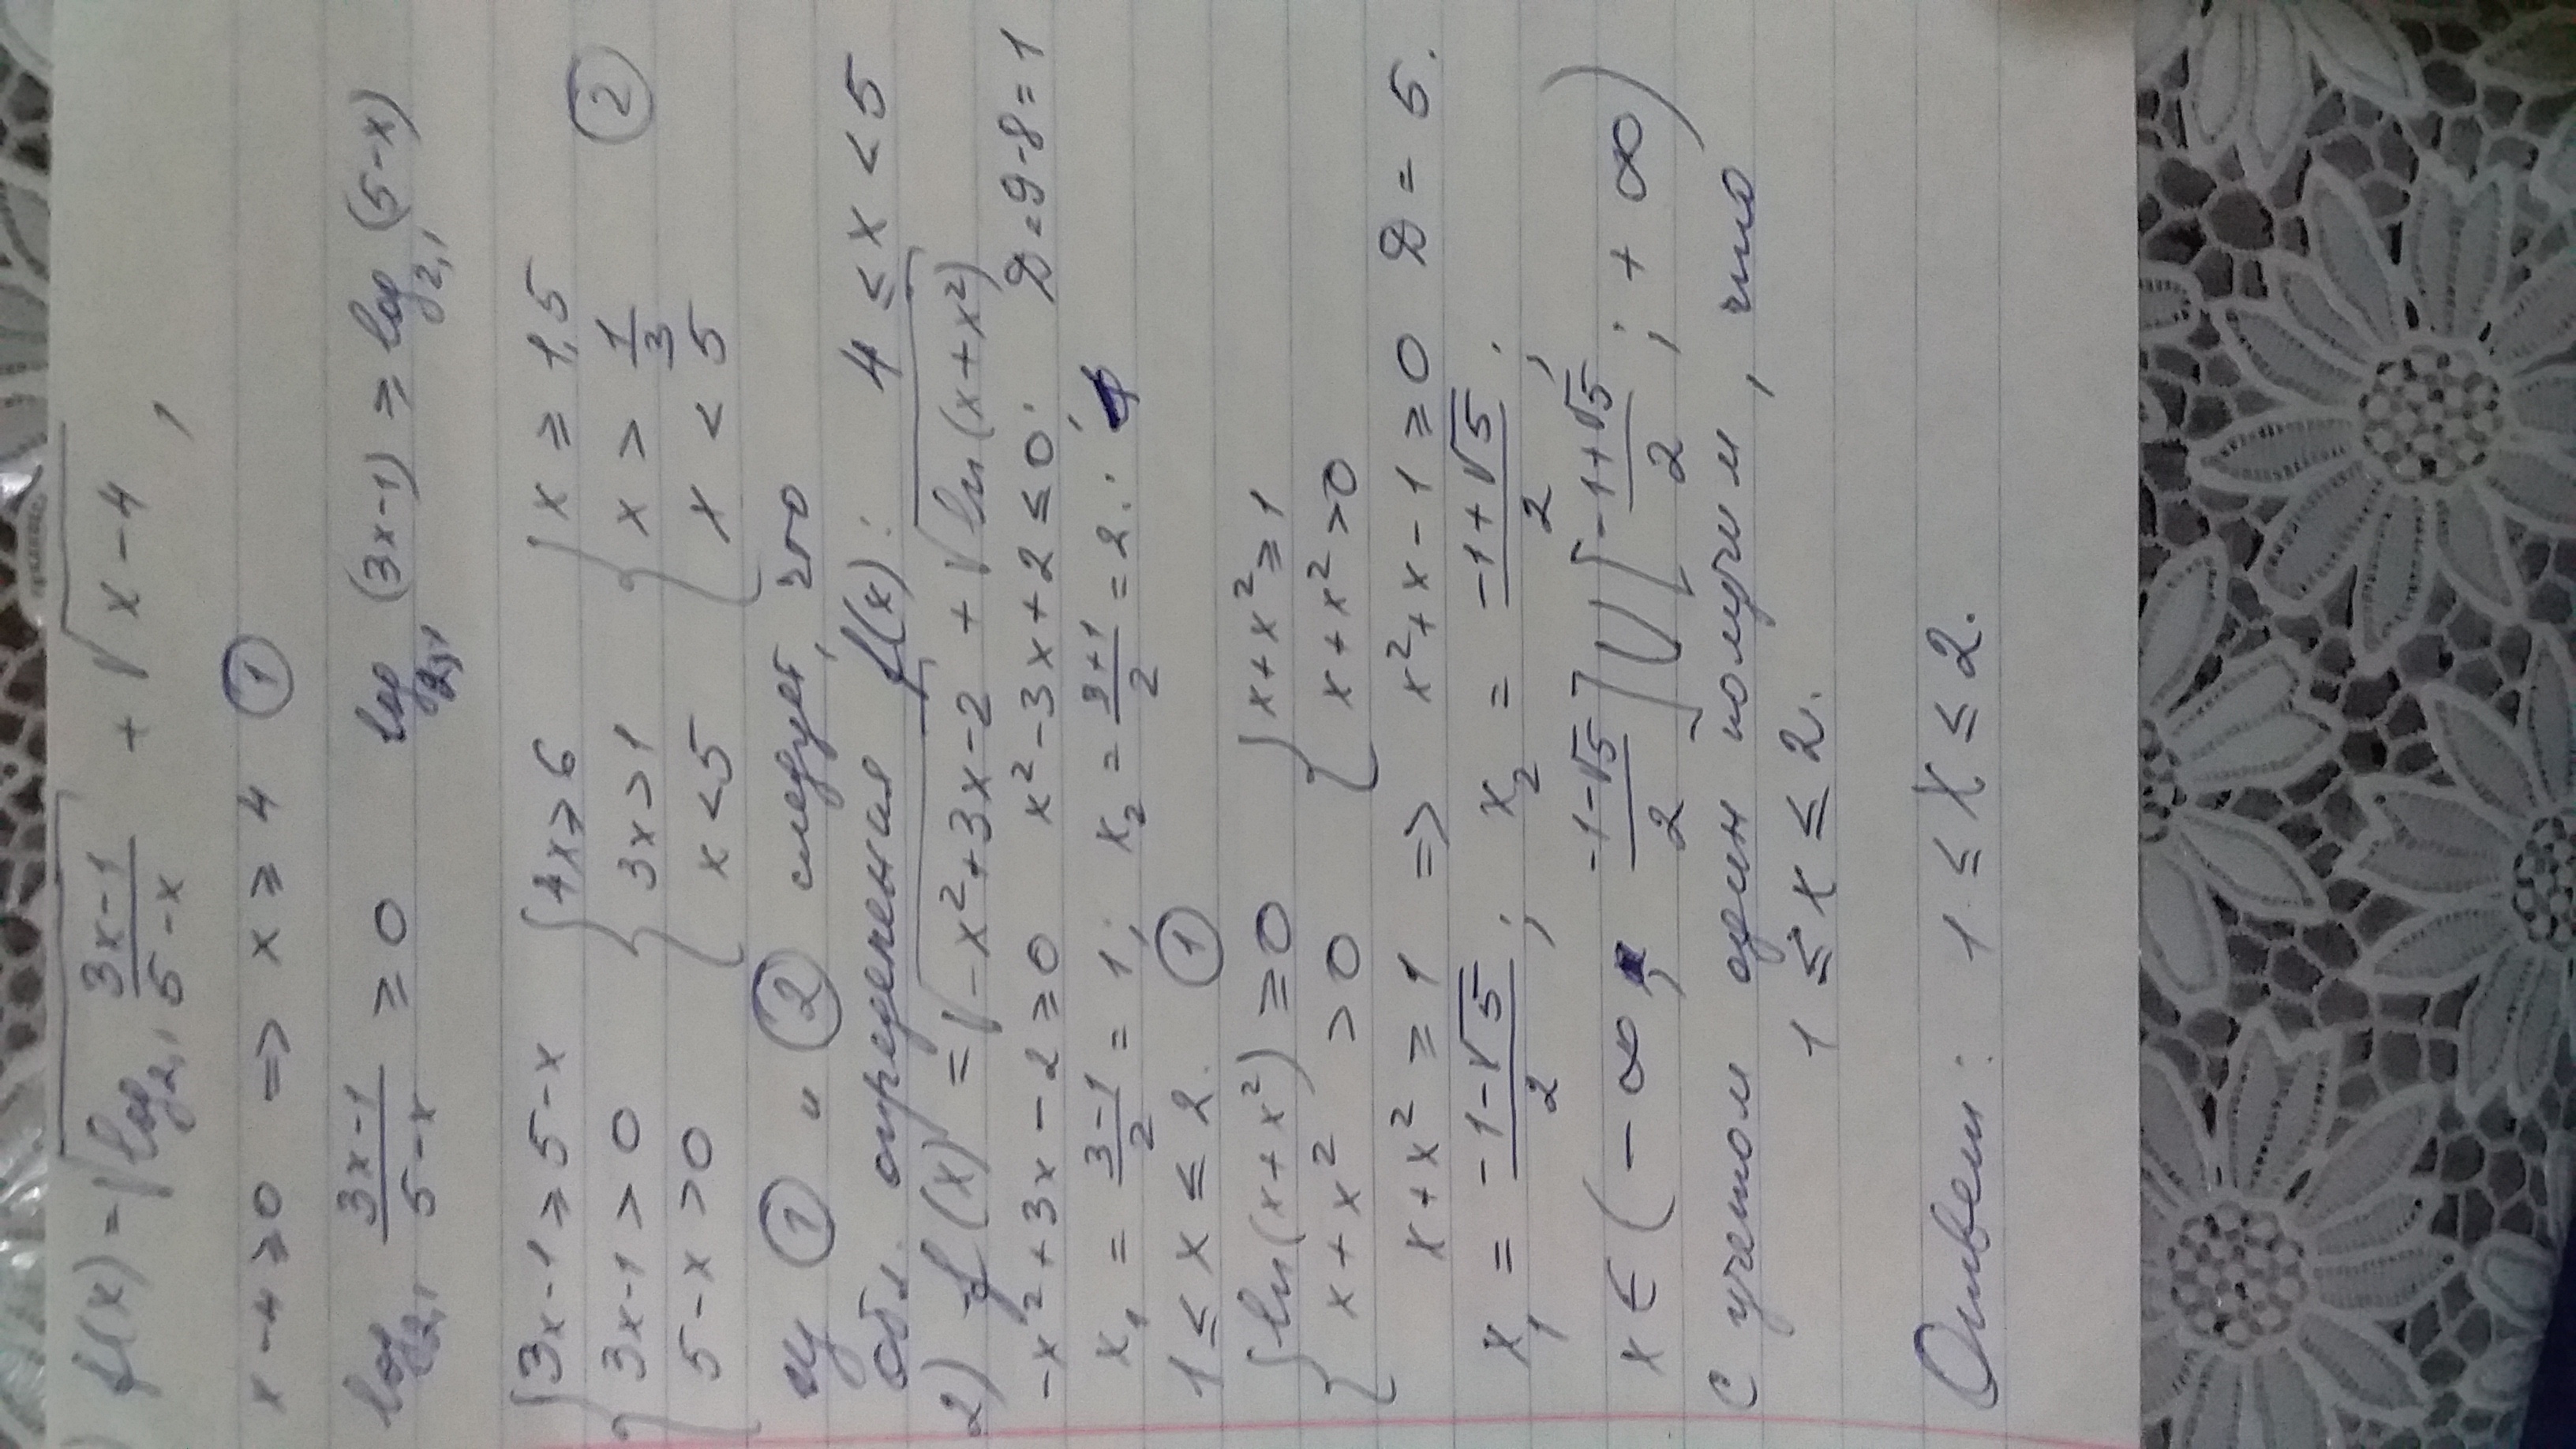 f(x) = √(log₂,₁ (3x-1)/(5-x)) + √(x-4) ,
x-4≥0 => x ≥ 4 ①
log₂,₁ (3x-1)/(5-x) ≥ 0 log₂,₁ (3x-1) ≥ log₂,₁ (5-x)
{ 3x-1 ≥ 5-x { 4x ≥ 6 { x ≥ 1,5
3x-1 > 0 3x > 1 x > 1/3 ②
5-x > 0 x < 5 x < 5
из ① и ② следует, что
обл. определения f(x): 4 ≤ x < 5
2) f(x) = √(-x²+3x-2) + √(ln(x+x²))
-x²+3x-2 ≥ 0 x²-3x+2 ≤ 0. D=9-8=1
x₁ = (3-1)/2 = 1; x₂ = (3+1)/2 = 2.
1 ≤ x ≤ 2. ①
{ ln(x+x²) ≥ 0 { x+x² ≥ 1
x+x² > 0 x+x² > 0
x+x² ≥ 1 => x²+x-1 ≥ 0 D = 5.
x₁ = (-1-√5)/2 ; x₂ = (-1+√5)/2 ;
x ∈ (-∞; (-1-√5)/2] ∪ [(-1+√5)/2 ; +∞)
С учетом один получим, что
1 ≤ x ≤ 2.
Ответ: 1 ≤ x ≤ 2.